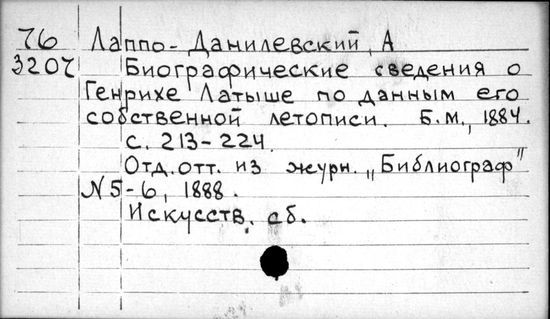 76 Лаппо-Данилевский, А
3207 Биографические сведения о
Генрихе Латыше по данным его
собственной летописи. Б.м., 1884.
с. 213-224.
Отд. отт. из журн. „Библиограф"
N 5-6, 1888.
Искусств. сб.